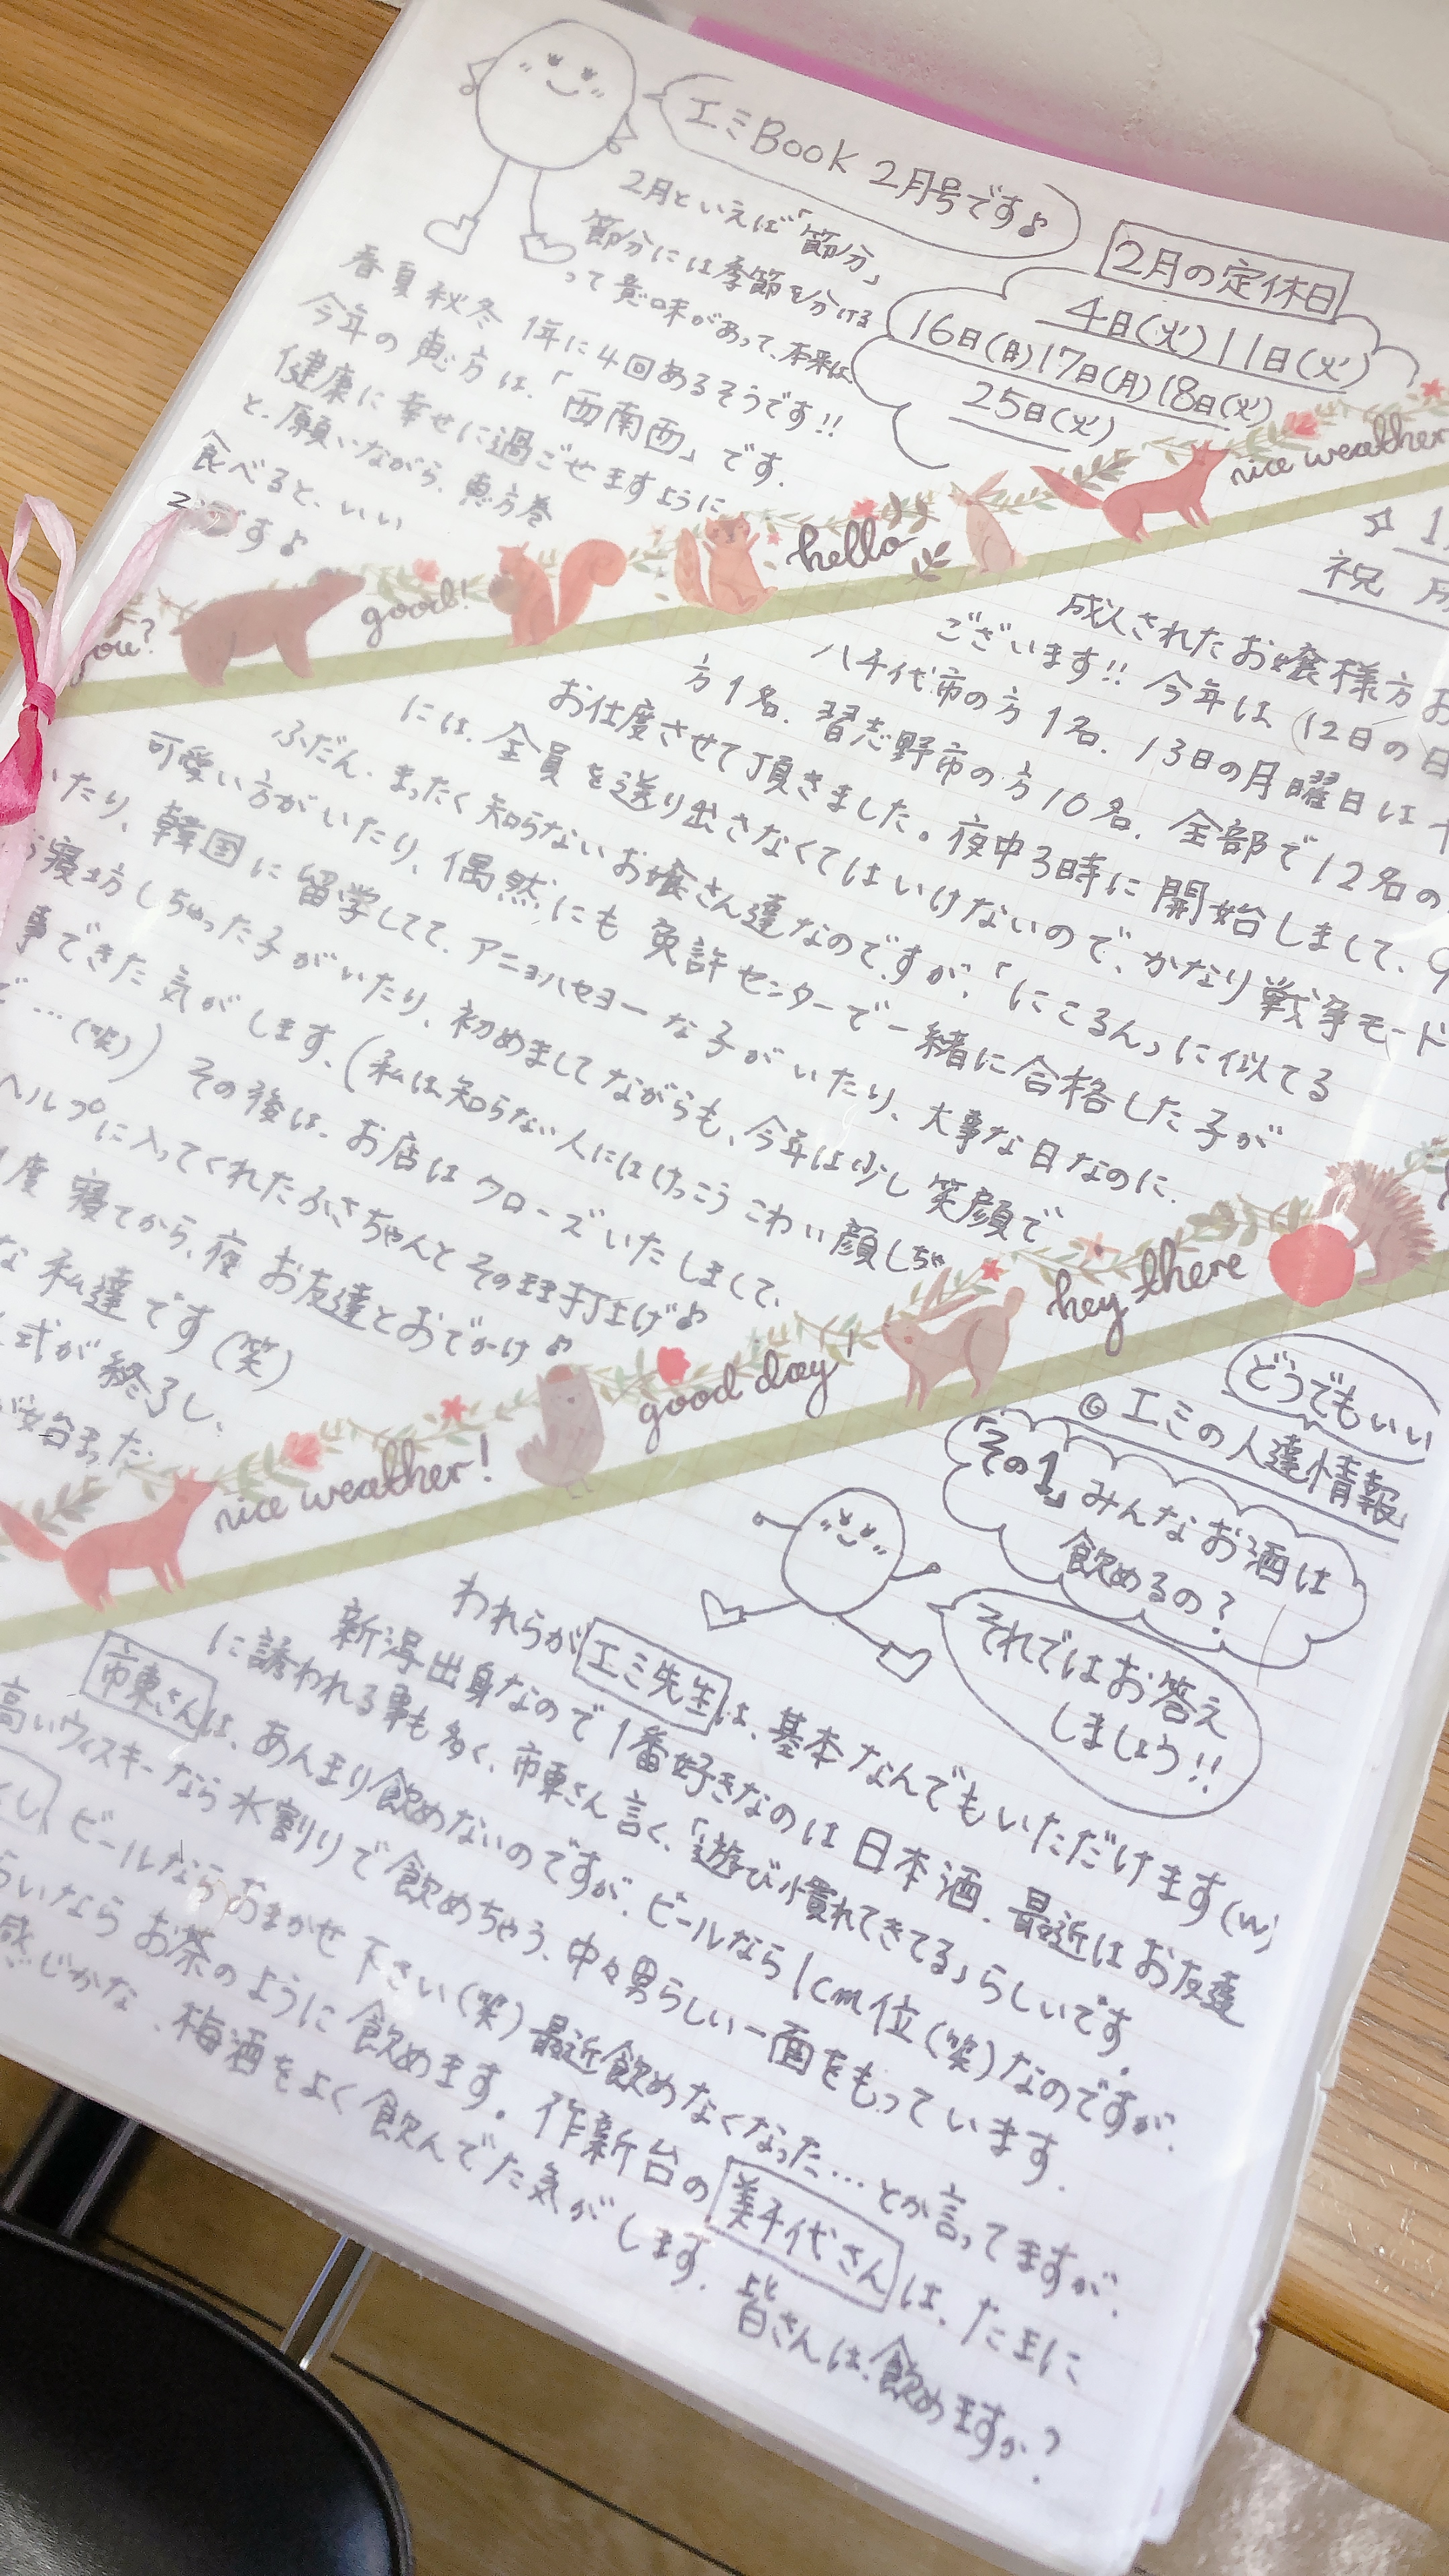 エミBook 2月号です♪
2月の定休日
4日(火) 11日(火)
16日(日) 17日(月) 18日(火)
25日(火)
2月といえば「節分」
節分には季節を分ける
って意味があって、本来は
春夏秋冬 1年に4回あるそうです!!
今年の恵方は、「西南西」です。
健康に幸せに過ごせますように
と、願いながら、恵方巻
食べると、いい
です♪
you?
good!
hello
nice weather
祝
成人されたお嬢様方
ございます!! 今年は (12日の日
八千代市の方 1名. 13日の月曜日は
方1名. 習志野市の方10名. 全部で12名の
お仕度させて頂きました。夜中3時に開始しまして、9
には、全員を送り出さなくてはいけないので、かなり戦争モード
ふだん、まったく知らないお嬢さん達なのですが、「にこるん」に似てる
可愛い方がいたり、偶然にも 免許センターで一緒に合格した子が
いたり、韓国に留学してて、アニョハセヨーな子がいたり、大事な日なのに、
寝坊しちゃった子がいたり、初めましてながらも、今年は少し笑顔で
事できた気がします、(私は知らない人にはけっこうこわい顔しちゃ
…(笑)) その後は、お店はクローズいたしまして、
ヘルプに入ってくれたふさちゃんと その日打上げ♪
度 寝てから、夜 お友達とおでかけ♪
な 私達です(笑)
式が終了し、
が始まった
nice weather!
good day!
hey there
どうでもいい
◎ エミの人達情報
「その1」みんなお酒は
飲めるの?
それではお答え
しましょう!!
われらがエミ先生は、基本なんでもいただけます(w)
新潟出身なので1番好きなのは日本酒、最近はお友達
に誘われる事も多く、市東さん言く、「遊び慣れてきてる」らしいです。
市東さんは、あんまり飲めないのですが、ビールなら1cm位(笑)なのですが、
高いウィスキーなら水割りで飲めちゃう、中々男らしい一面をもっています。
くし、ビールならおまかせ下さい(笑)最近飲めなくなった…とか言ってますが、
らいなら お茶のように飲めます。作新台の美千代さんは、たまに
感じかな、梅酒をよく飲んでた気がします。皆さんは、飲めますか?